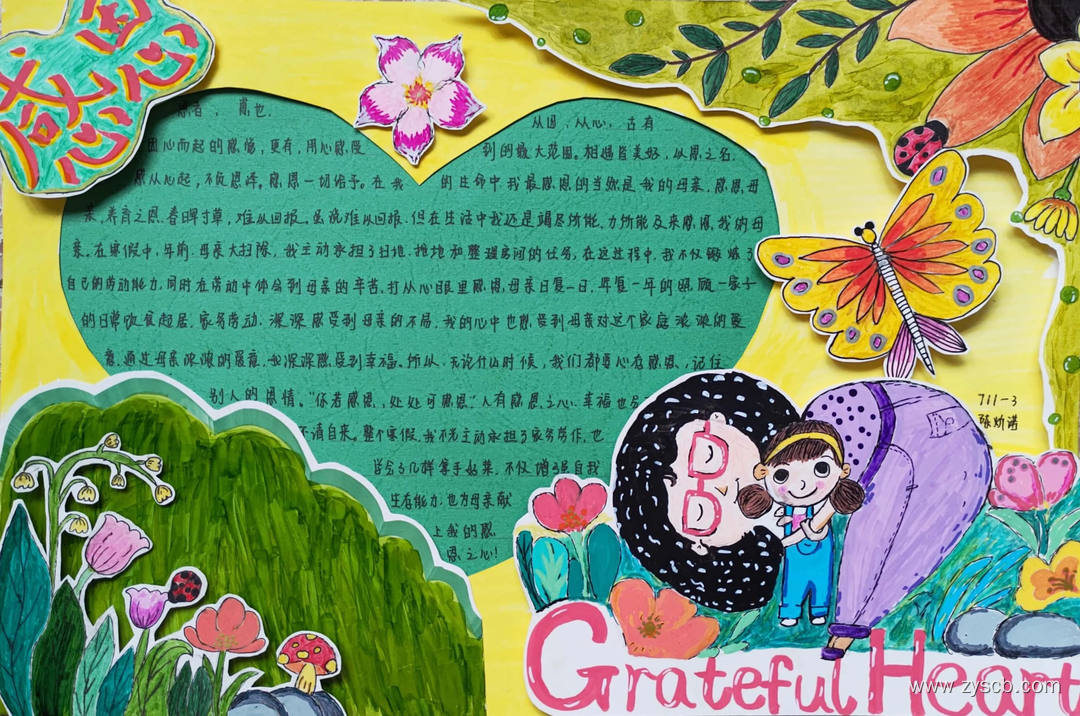 感恩心
者， 也.
从因，从心，古有
因心而起的感悟，更有，用心感受
到的最大范围。相遇皆美好，以恩之名.
感从心起，不负恩泽。感恩一切给予。在我
的生命中我最感恩的当然是我的母亲.感恩母
亲，养育之恩.春晖寸草，难以回报。虽说难以回报.但在生活中我还是竭尽所能.力所能及来感恩，我的母
亲。在寒假中，年前.母亲大扫除，我主动承担了扫地.拖地和整理房间的任务，在这过程中，我不仅锻炼了
自己的劳动能力.同时在劳动中体会到母亲的辛苦.打从心眼里感恩，母亲日复一日，年复一年的照顾一家子
的日常饮食起居.家务劳动.深深感受到母亲的不易.我的心中也感受到母亲对这个家庭浓浓的爱
意.通过母亲浓浓的爱意，我深深感受到幸福。所以，无论什么时候，我们都要心存感恩，记住
别人的恩情。"你若感恩，处处可感恩"人有感恩之心.幸福也会
不请自来。整个寒假，我不光主动承担了家务劳作，也
学会了几样拿手好菜.不仅增强自我
生存能力.也为母亲献
上我的感
恩之心!
711-3
Grateful Heart
www.zyscb.com